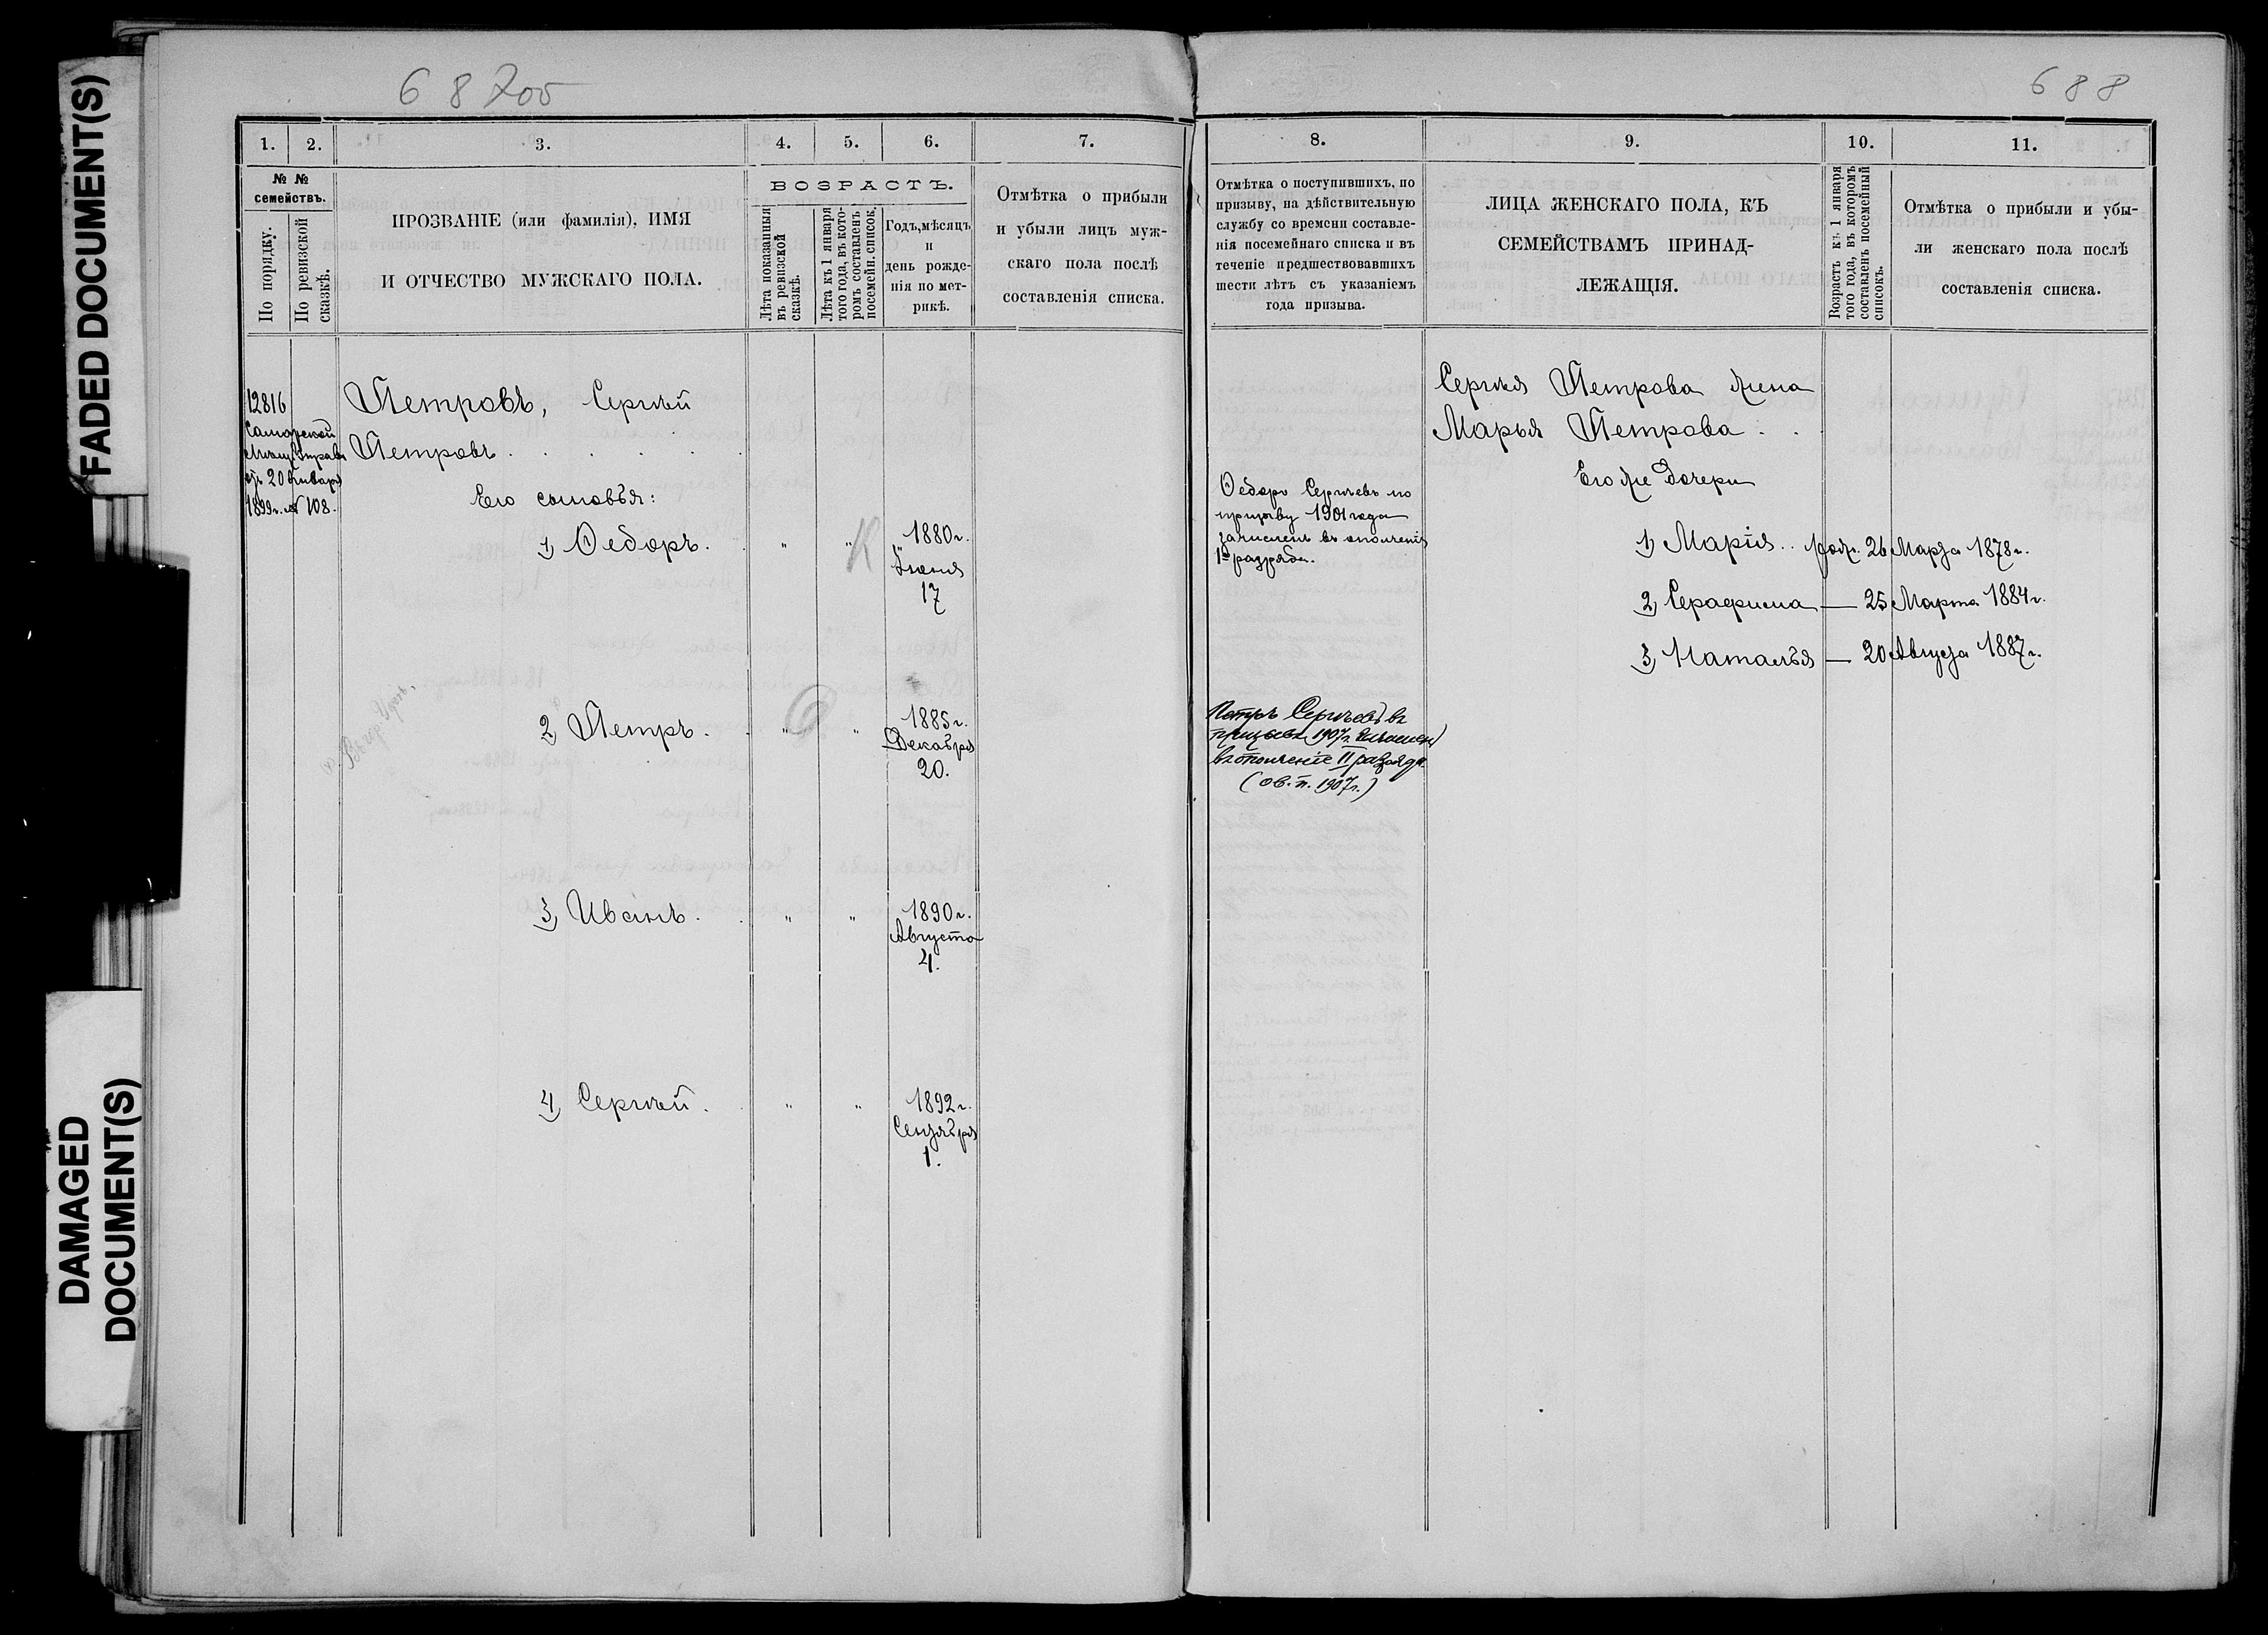 FADED DOCUMENT(S)
DAMAGED
DOCUMENT(S)
68700
688
1. 2. 3. 4. 5. 6. 7.
№ №
семействъ.
По порядку.
По ревизской
сказкѣ.
ПРОЗВАНІЕ (или фамилія), ИМЯ
И ОТЧЕСТВО МУЖСКАГО ПОЛА.
ВОЗРАСТЪ.
Лѣта показанныя
въ ревизской
сказкѣ.
Лѣта къ 1 января
того года, въ кото-
ромъ составленъ
посемейн. список.
Годъ, мѣсяцъ
и
день рожде-
нія по мет-
рикѣ.
Отмѣтка о прибыли
и убыли лицъ муж-
скаго пола послѣ
составленія списка.
12816
Самарской
Мѣщ. Управы
отъ 20 Января
1899 г. № 108.
Петровъ, Сергѣй
Петровъ
Его сыновья:
1) Ѳедоръ. " " К 1880 г.
Іюня
17
2) Петръ. " " 1885 г.
Декабря
20.
3) Иванъ. " " 1890 г.
Августа
4.
4) Сергѣй. " " 1892 г.
Сентября
1.
8. 9. 10. 11.
Отмѣтка о поступившихъ, по
призыву, на дѣйствительную
службу со времени составле-
нія посемейнаго списка и въ
теченіе предшествовавшихъ
шести лѣтъ съ указаніемъ
года призыва.
ЛИЦА ЖЕНСКАГО ПОЛА, КЪ
СЕМЕЙСТВАМЪ ПРИНАД-
ЛЕЖАЩІЯ.
Возрастъ къ 1 января
того года, въ которомъ
составленъ посемейный
списокъ.
Отмѣтка о прибыли и убы-
ли женскаго пола послѣ
составленія списка.
Ѳедоръ Сергѣевъ по
призыву 1901 года
зачисленъ въ ополченіе
1го разряда.
Петръ Сергѣевъ въ
призывъ 1907 г. зачисленъ
въ ополченіе II разряда.
(ов. п. 1907 г.)
Сергѣя Петрова жена
Марья Петрова
Его же дочери
1) Марія.. род. 26 Марта 1878 г.
2) Серафима — 25 Марта 1884 г.
3) Наталья — 20 Августа 1887 г.